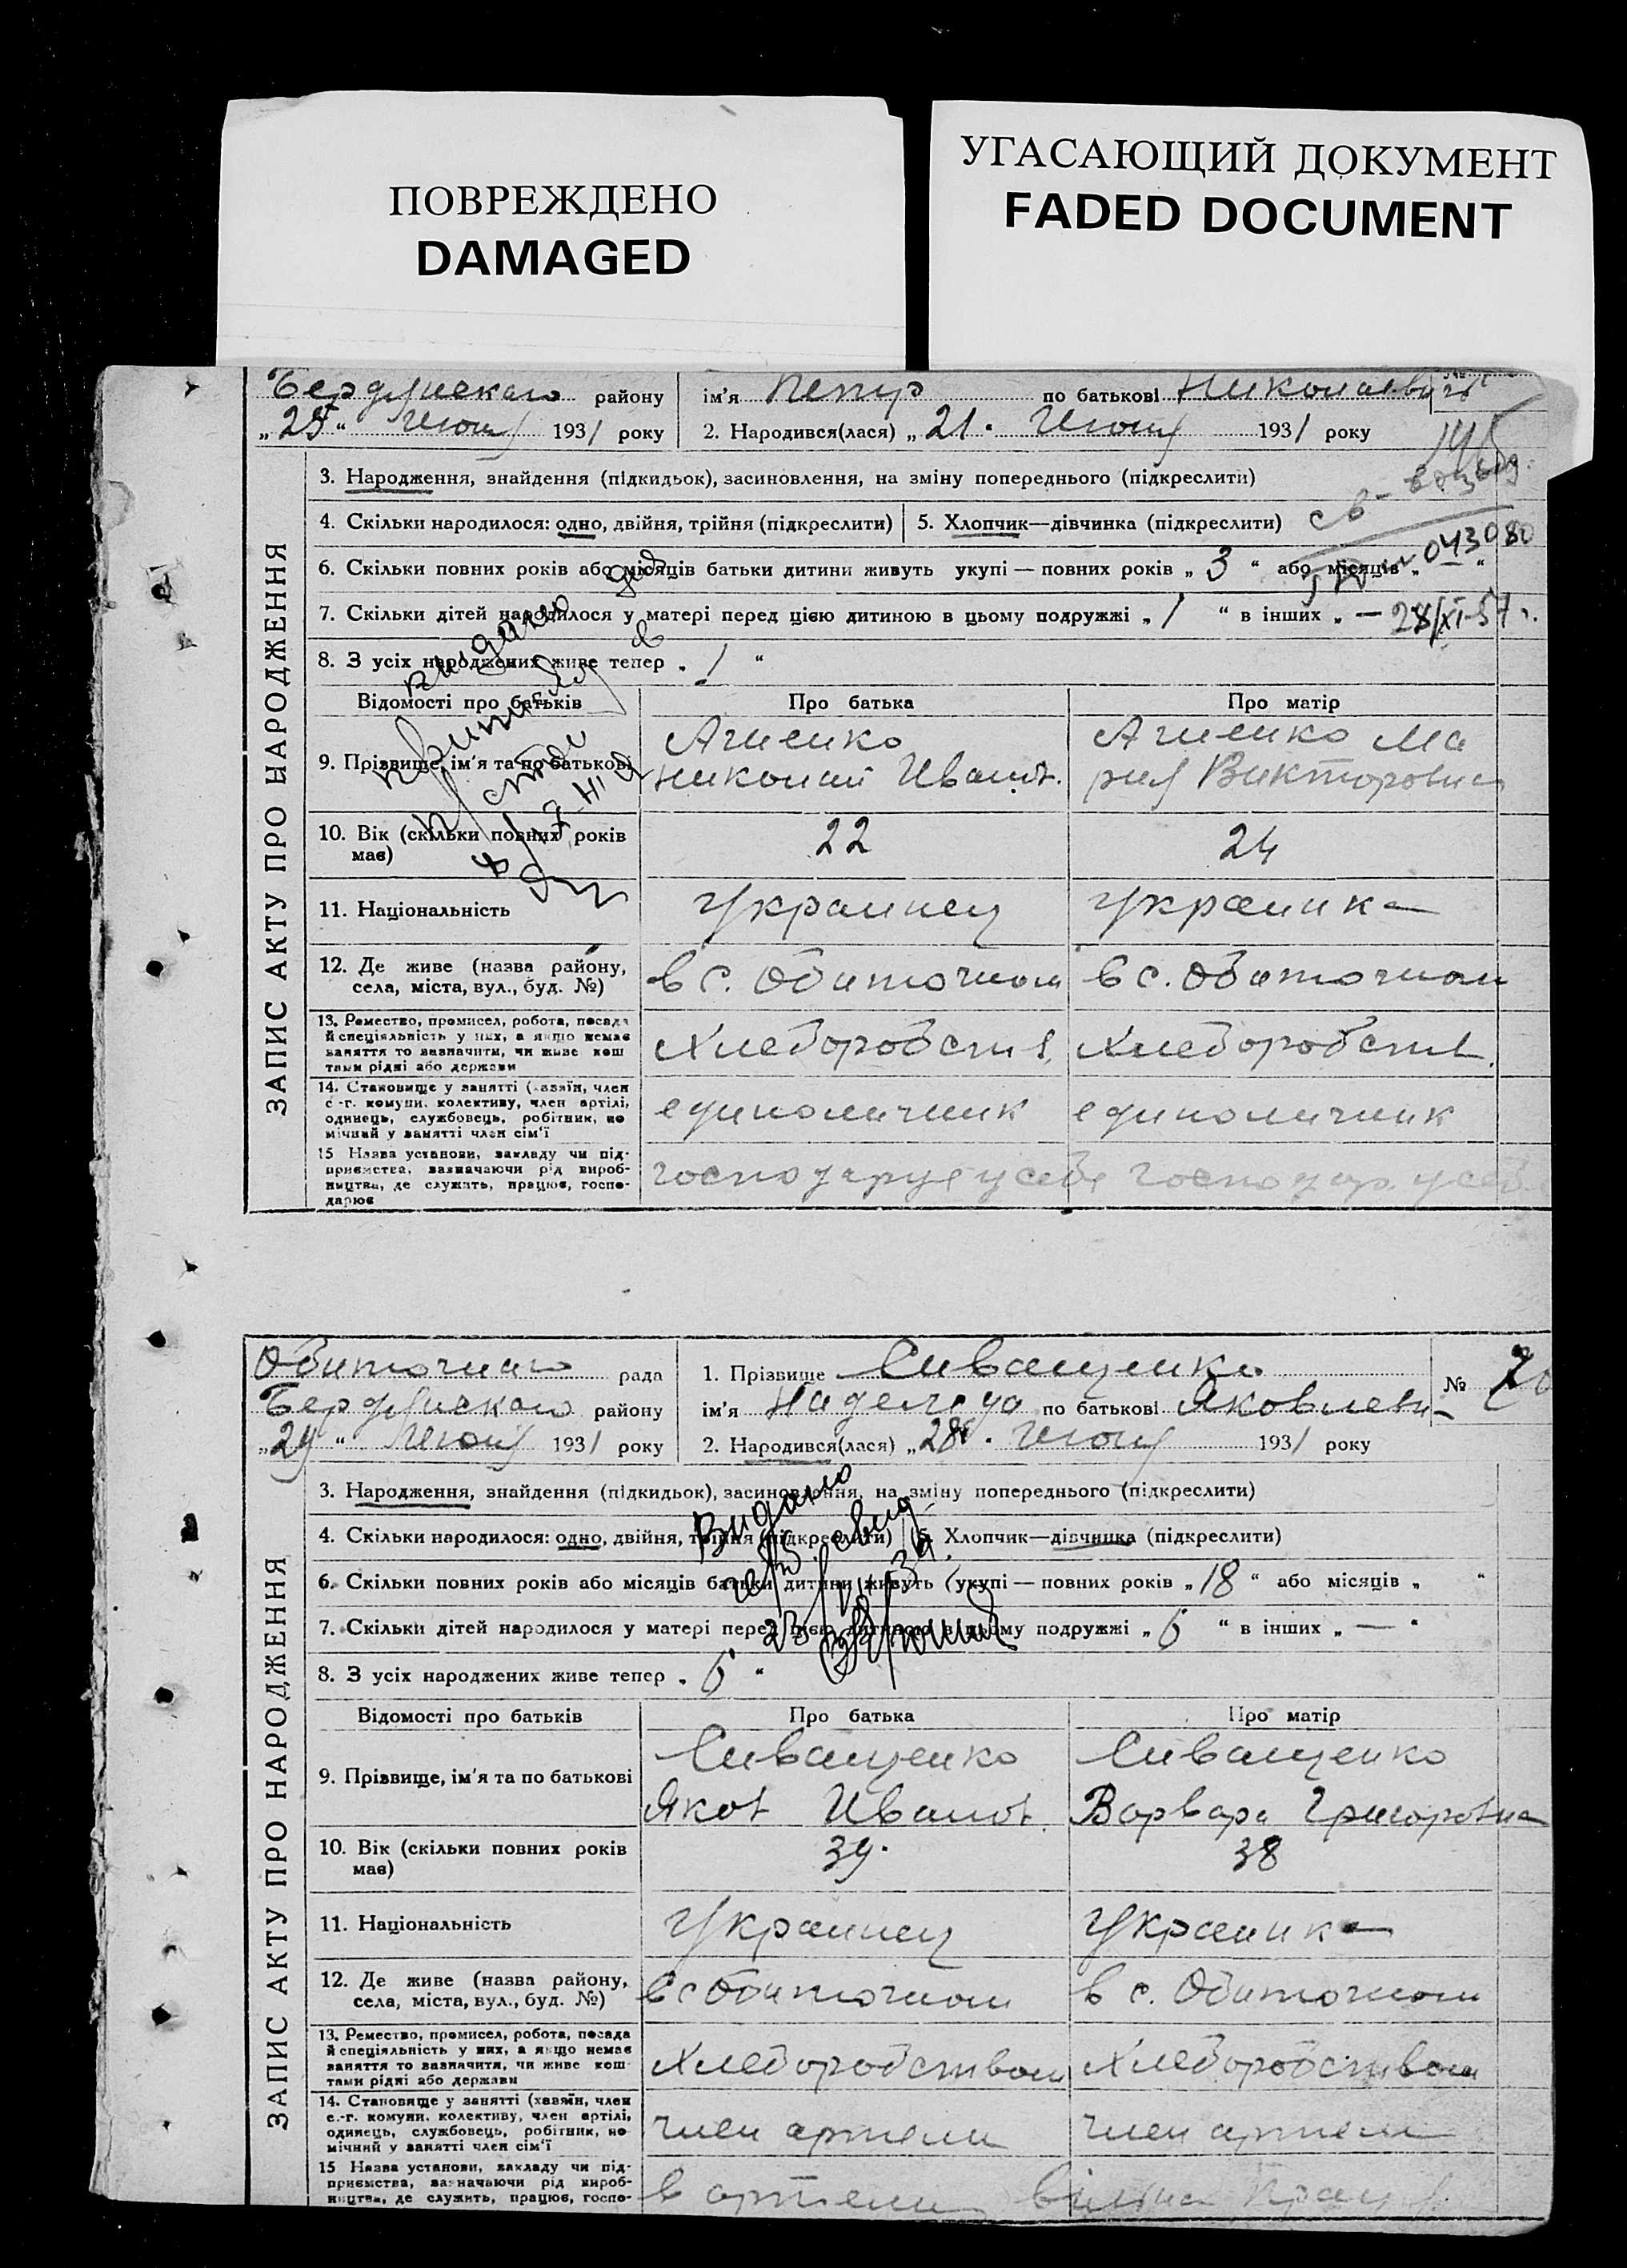 ПОВРЕЖДЕНО
DAMAGED
УГАСАЮЩИЙ ДОКУМЕНТ
FADED DOCUMENT
Бердянского району
ім'я Петр по батькові Николаевич
„25“ Июня 1931 року
2. Народився(лася) „21. Июня 1931 року
ЗАПИС АКТУ ПРО НАРОДЖЕННЯ
3. Народження, знайдення (підкидьок), засиновлення, на зміну попереднього (підкреслити)
4. Скільки народилося: одно, двійня, трійня (підкреслити)
5. Хлопчик—дівчинка (підкреслити)
043080
6. Скільки повних років або місяців батьки дитини живуть укупі — повних років „ 3 “ або місяців „ “
7. Скільки дітей народилося у матері перед цією дитиною в цьому подружжі „ 1 “ в інших „ —
28/XI-57 г.
8. З усіх народжених живе тепер „ 1 “
Відомості про батьків
Про батька
Про матір
9. Прізвище, ім'я та по батькові
Николай Иванов.
Мария Викторовна
10. Вік (скільки повних років має)
22
24
11. Національність
Украинец
Украинка
12. Де живе (назва району, села, міста, вул., буд. №)
в с. Обиточном
в с. Обиточном
13. Ремество, промисел, робота, посада
й спеціяльність у них, а якщо немає
заняття то зазначити, чи живе кош
тами рідні або держави
Хлеборобств.
Хлеборобств.
14. Становище у занятті (хазяїн, член
с.-г. комуни, колективу, член артілі,
одинець, службовець, робітник, по
мічний у занятті член сім'ї
единоличник
единоличник
15 Назва установи, закладу чи під-
приємства, зазначаючи рід вироб-
ництва, де служить, працює, госпо-
дарює
господарує у себе
господар. у себе
Обиточного рада
1. Прізвище Сиващенко
№
Бердянского району
ім'я Надежда по батькові Яковлевн
„29“ Июня 1931 року
2. Народився(лася) „28. Июня 1931 року
ЗАПИС АКТУ ПРО НАРОДЖЕННЯ
3. Народження, знайдення (підкидьок), засиновлення, на зміну попереднього (підкреслити)
Видано
4. Скільки народилося: одно, двійня, трійня (підкреслити)
5. Хлопчик—дівчинка (підкреслити)
6. Скільки повних років або місяців батьки дитини живуть укупі — повних років „ 18 “ або місяців „ “
7. Скільки дітей народилося у матері перед цією дитиною в цьому подружжі „ 6 “ в інших „ — “
8. З усіх народжених живе тепер „ 6 “
Відомості про батьків
Про батька
Про матір
9. Прізвище, ім'я та по батькові
Сиващенко
Яков Иванов.
Сиващенко
Варвара Григоровна
10. Вік (скільки повних років має)
39.
38
11. Національність
Украинец
Украинка
12. Де живе (назва району, села, міста, вул., буд. №)
в с Обиточном
в с. Обиточном
13. Ремество, промисел, робота, посада
й спеціяльність у них, а якщо немає
заняття то зазначити, чи живе кош
тами рідні або держави
Хлеборобством
Хлеборобством
14. Становище у занятті (хазяїн, член
с.-г. комуни, колективу, член артілі,
одинець, службовець, робітник, по
мічний у занятті член сім'ї
член артели
член артели
15 Назва установи, закладу чи під-
приємства, зазначаючи рід вироб-
ництва, де служить, працює, госпо-
в артели